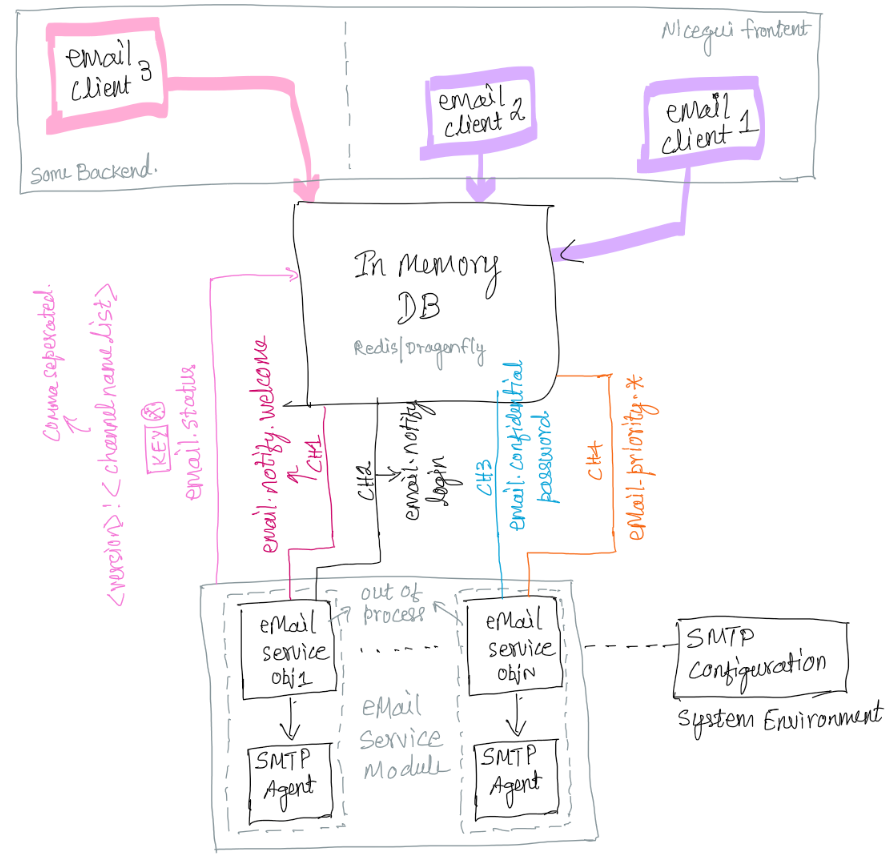 Nicegui frontent
eMail
client 3
eMail
client 2
eMail
client 1
Some Backend.
In Memory
DB
Redis/Dragonfly
comma seperated.
<version>:<channel name list>
KEY *
email.status
email.notify.welcome
CH1
CH2
email.notify
login
CH3
email.confidential
password
CH4
eMail.priority.*
out of
process
eMail
service
obj1
eMail
service
objN
SMTP
Configuration
System Environment
eMail
Service
Module
SMTP
Agent
SMTP
Agent